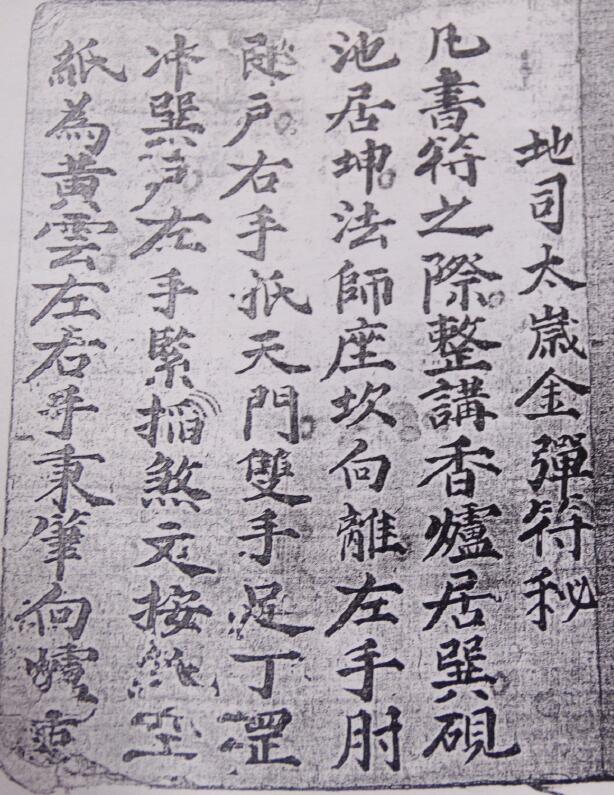 地司太歲金彈符秘
凡書符之際整講香爐居巽硯
池居坤法師座坎向離左手肘
戶右手抵天門雙手足丁罡
冲巽戶左手緊掐煞文按
紙為黃雲左右手秉筆向爐